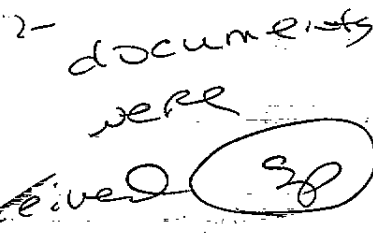 2-
documents
were
eived Sp